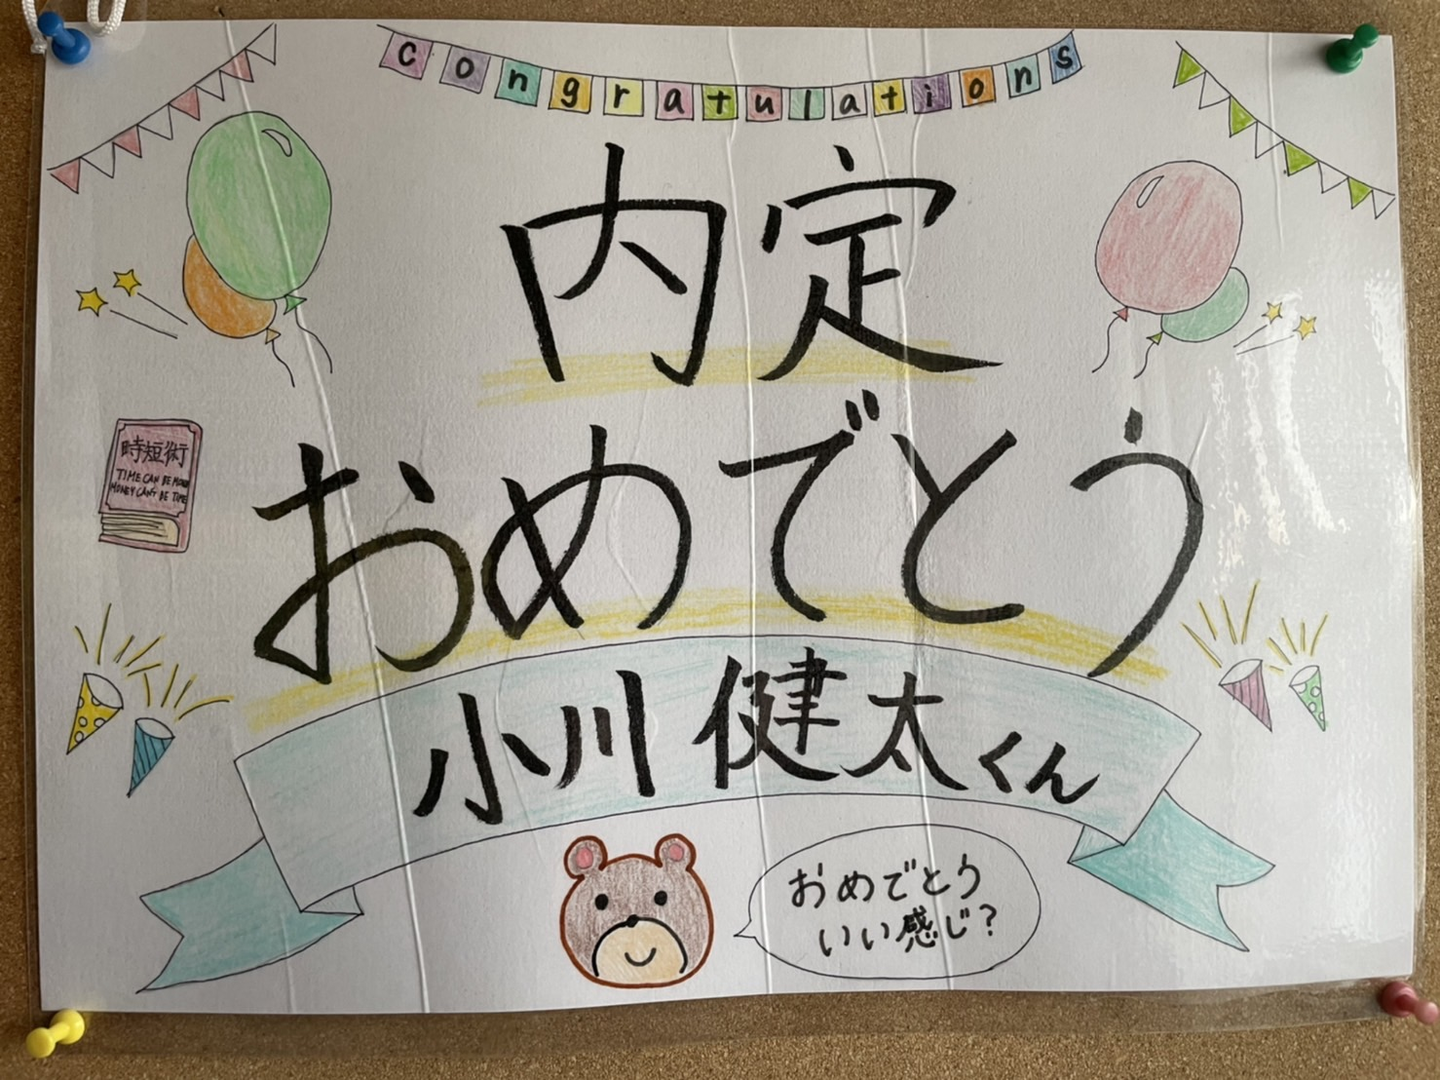 Congratulations
内定
おめでとう
時短術
TIME CAN BE MONEY
MONEY CAN'T BE TIME
小川 健太くん
おめでとう
いい感じ?